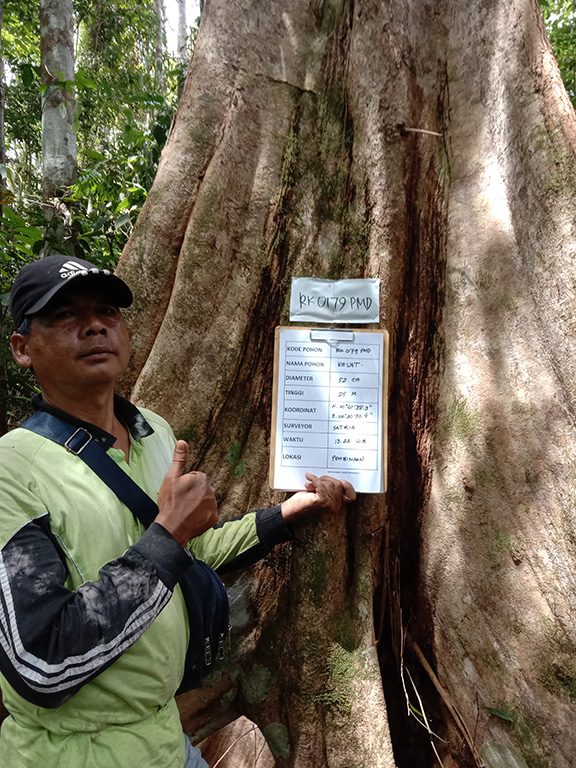 adidas
RK 0179 PMD
KODE POHON RK 0179 PMD
NAMA POHON KELAT
DIAMETER 52 CM
TINGGI 25 M
KOORDINAT
SURVEYOR SATRIA
WAKTU WIB
LOKASI PEMBINAAN